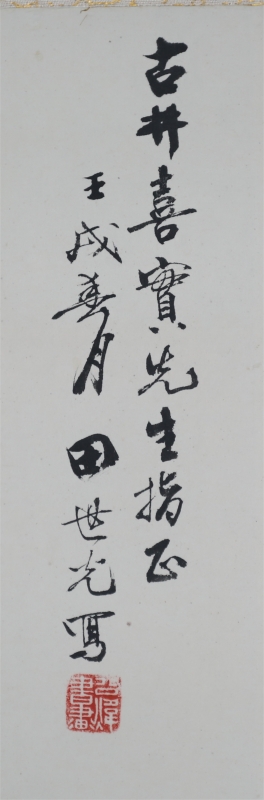 古井喜實先生指正
壬戌春月田世光寫